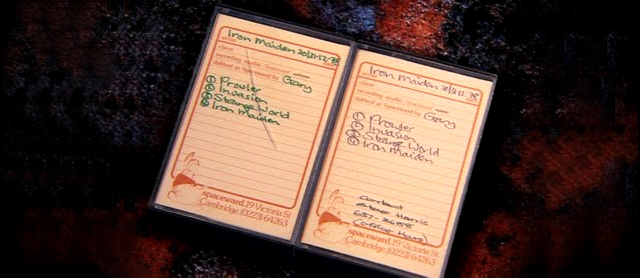 Iron Maiden 20/21-12-78
client
recording studio Spaceward
dubbed at Spaceward by Geary
① Prowler
② Invasion
③ Strange World
④ Iron Maiden
spaceward. 19 Victoria St
Cambridge (0223) 64263
Iron Maiden 20/21-12-78
client
recording studio Spaceward
dubbed at Spaceward by Geary
① Prowler
② Invasion
③ Strange World
④ Iron Maiden
Contact
Steve Harris
(Office Hours)
spaceward. 19 Victoria St
Cambridge (0223) 64263